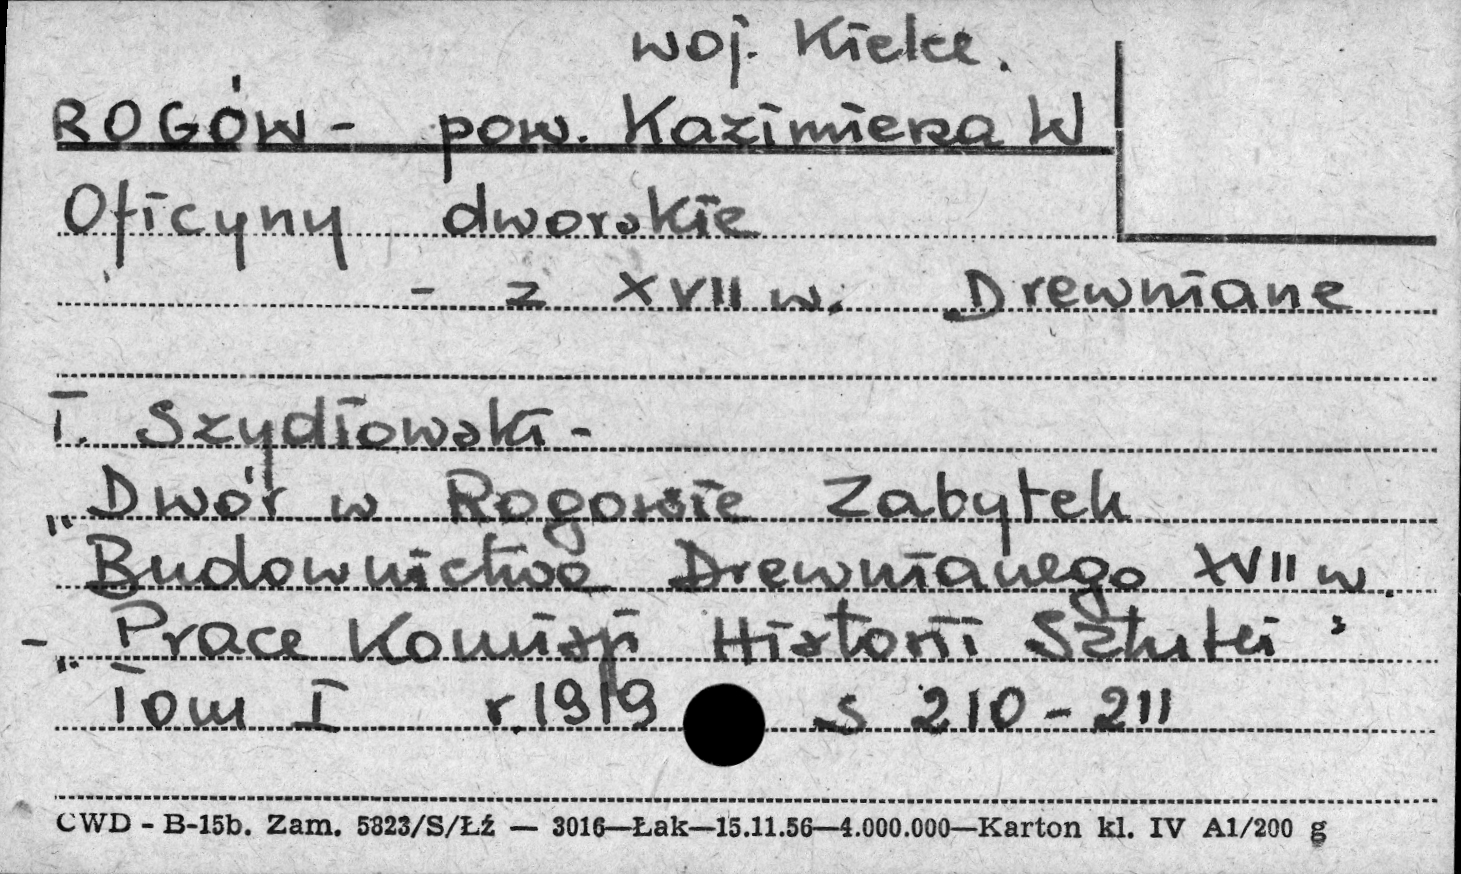 woj. Kielce.
ROGÓW - pow. Kazimierza W
Oficyny dworskie
- z XVII w. Drewniane
T. Szydłowski -
"Dwór w Rogowie Zabytek
Budownictwa Drewnianego XVII w.
- "Prace Komisji Historii Sztuki"
Tom I r. 1919 s 210-211
CWD - B-15b. Zam. 5823/S/Łź — 3016—Łak—15.11.56—4.000.000—Karton kl. IV A1/200 g